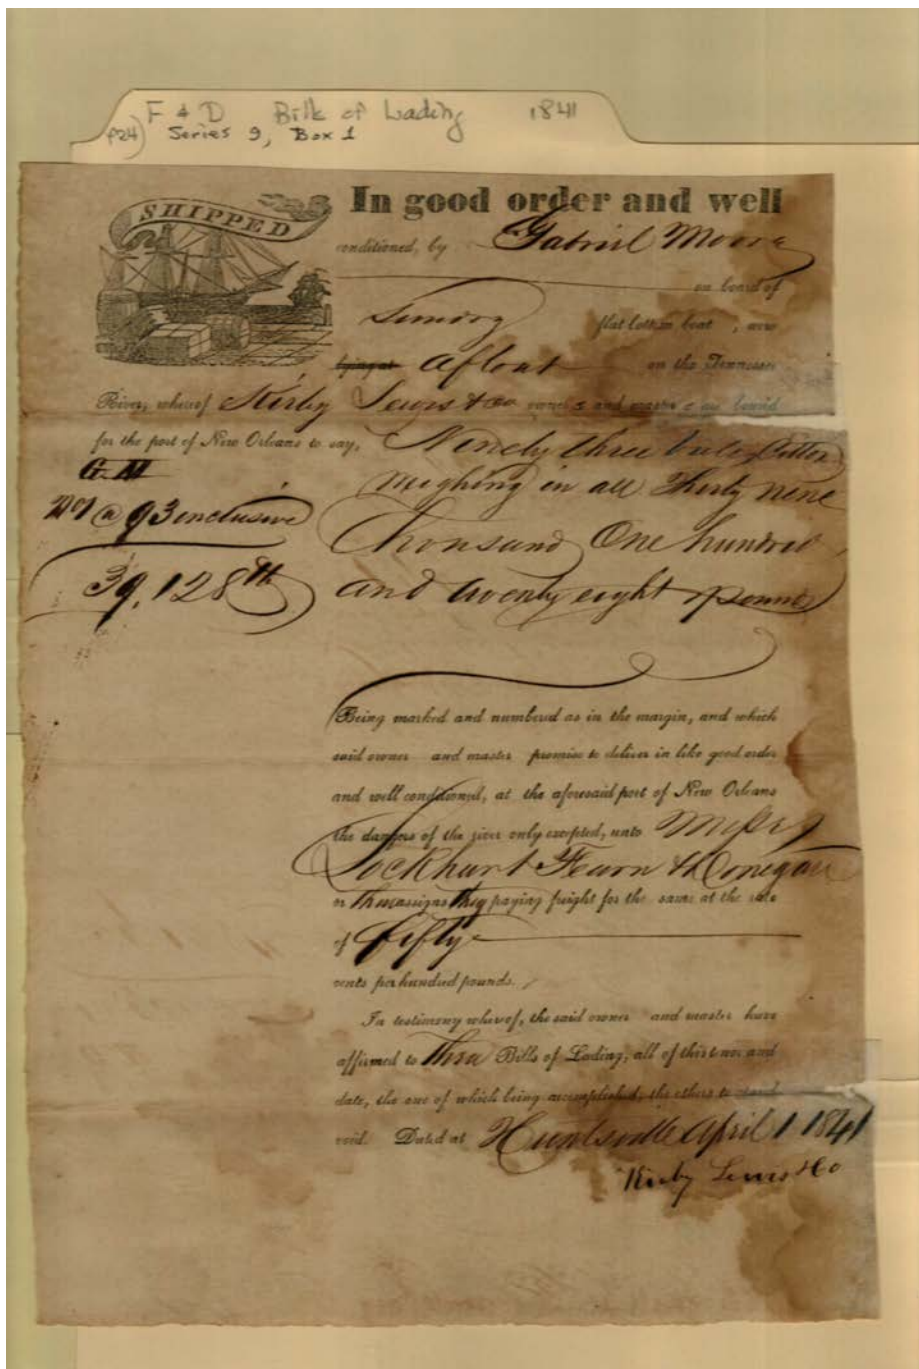 F & D Bills of Lading 1841
P24) Series 9, Box 1
SHIPPED
In good order and well
conditioned, by Gabriel Moore
on board of
flat bottom boat, now
lying at afloat on the Tennessee
River, whereof Kirby Lewis & co owners and master s are bound
for the port of New Orleans to say, Ninety three bales Cotton
G. M
No 1 @ 93 inclusive
weighing in all Thirty nine
Thousand One hundred
39,128 lbs
and twenty eight pounds
Being marked and numbered as in the margin, and which
said owner and master promise to deliver in like good order
and well conditioned, at the aforesaid port of New Orleans
the dangers of the river only excepted, unto Messrs
Lockhart Fearn & Donegan
or assigns they paying freight for the same at the rate
of fifty
cents per hundred pounds.
In testimony whereof, the said owner and master have
affirmed to three Bills of Lading, all of this tenor and
date, the one of which being accomplished, the others to stand
void. Dated at Huntsville April 1 1841
Kirby Lewis & Co